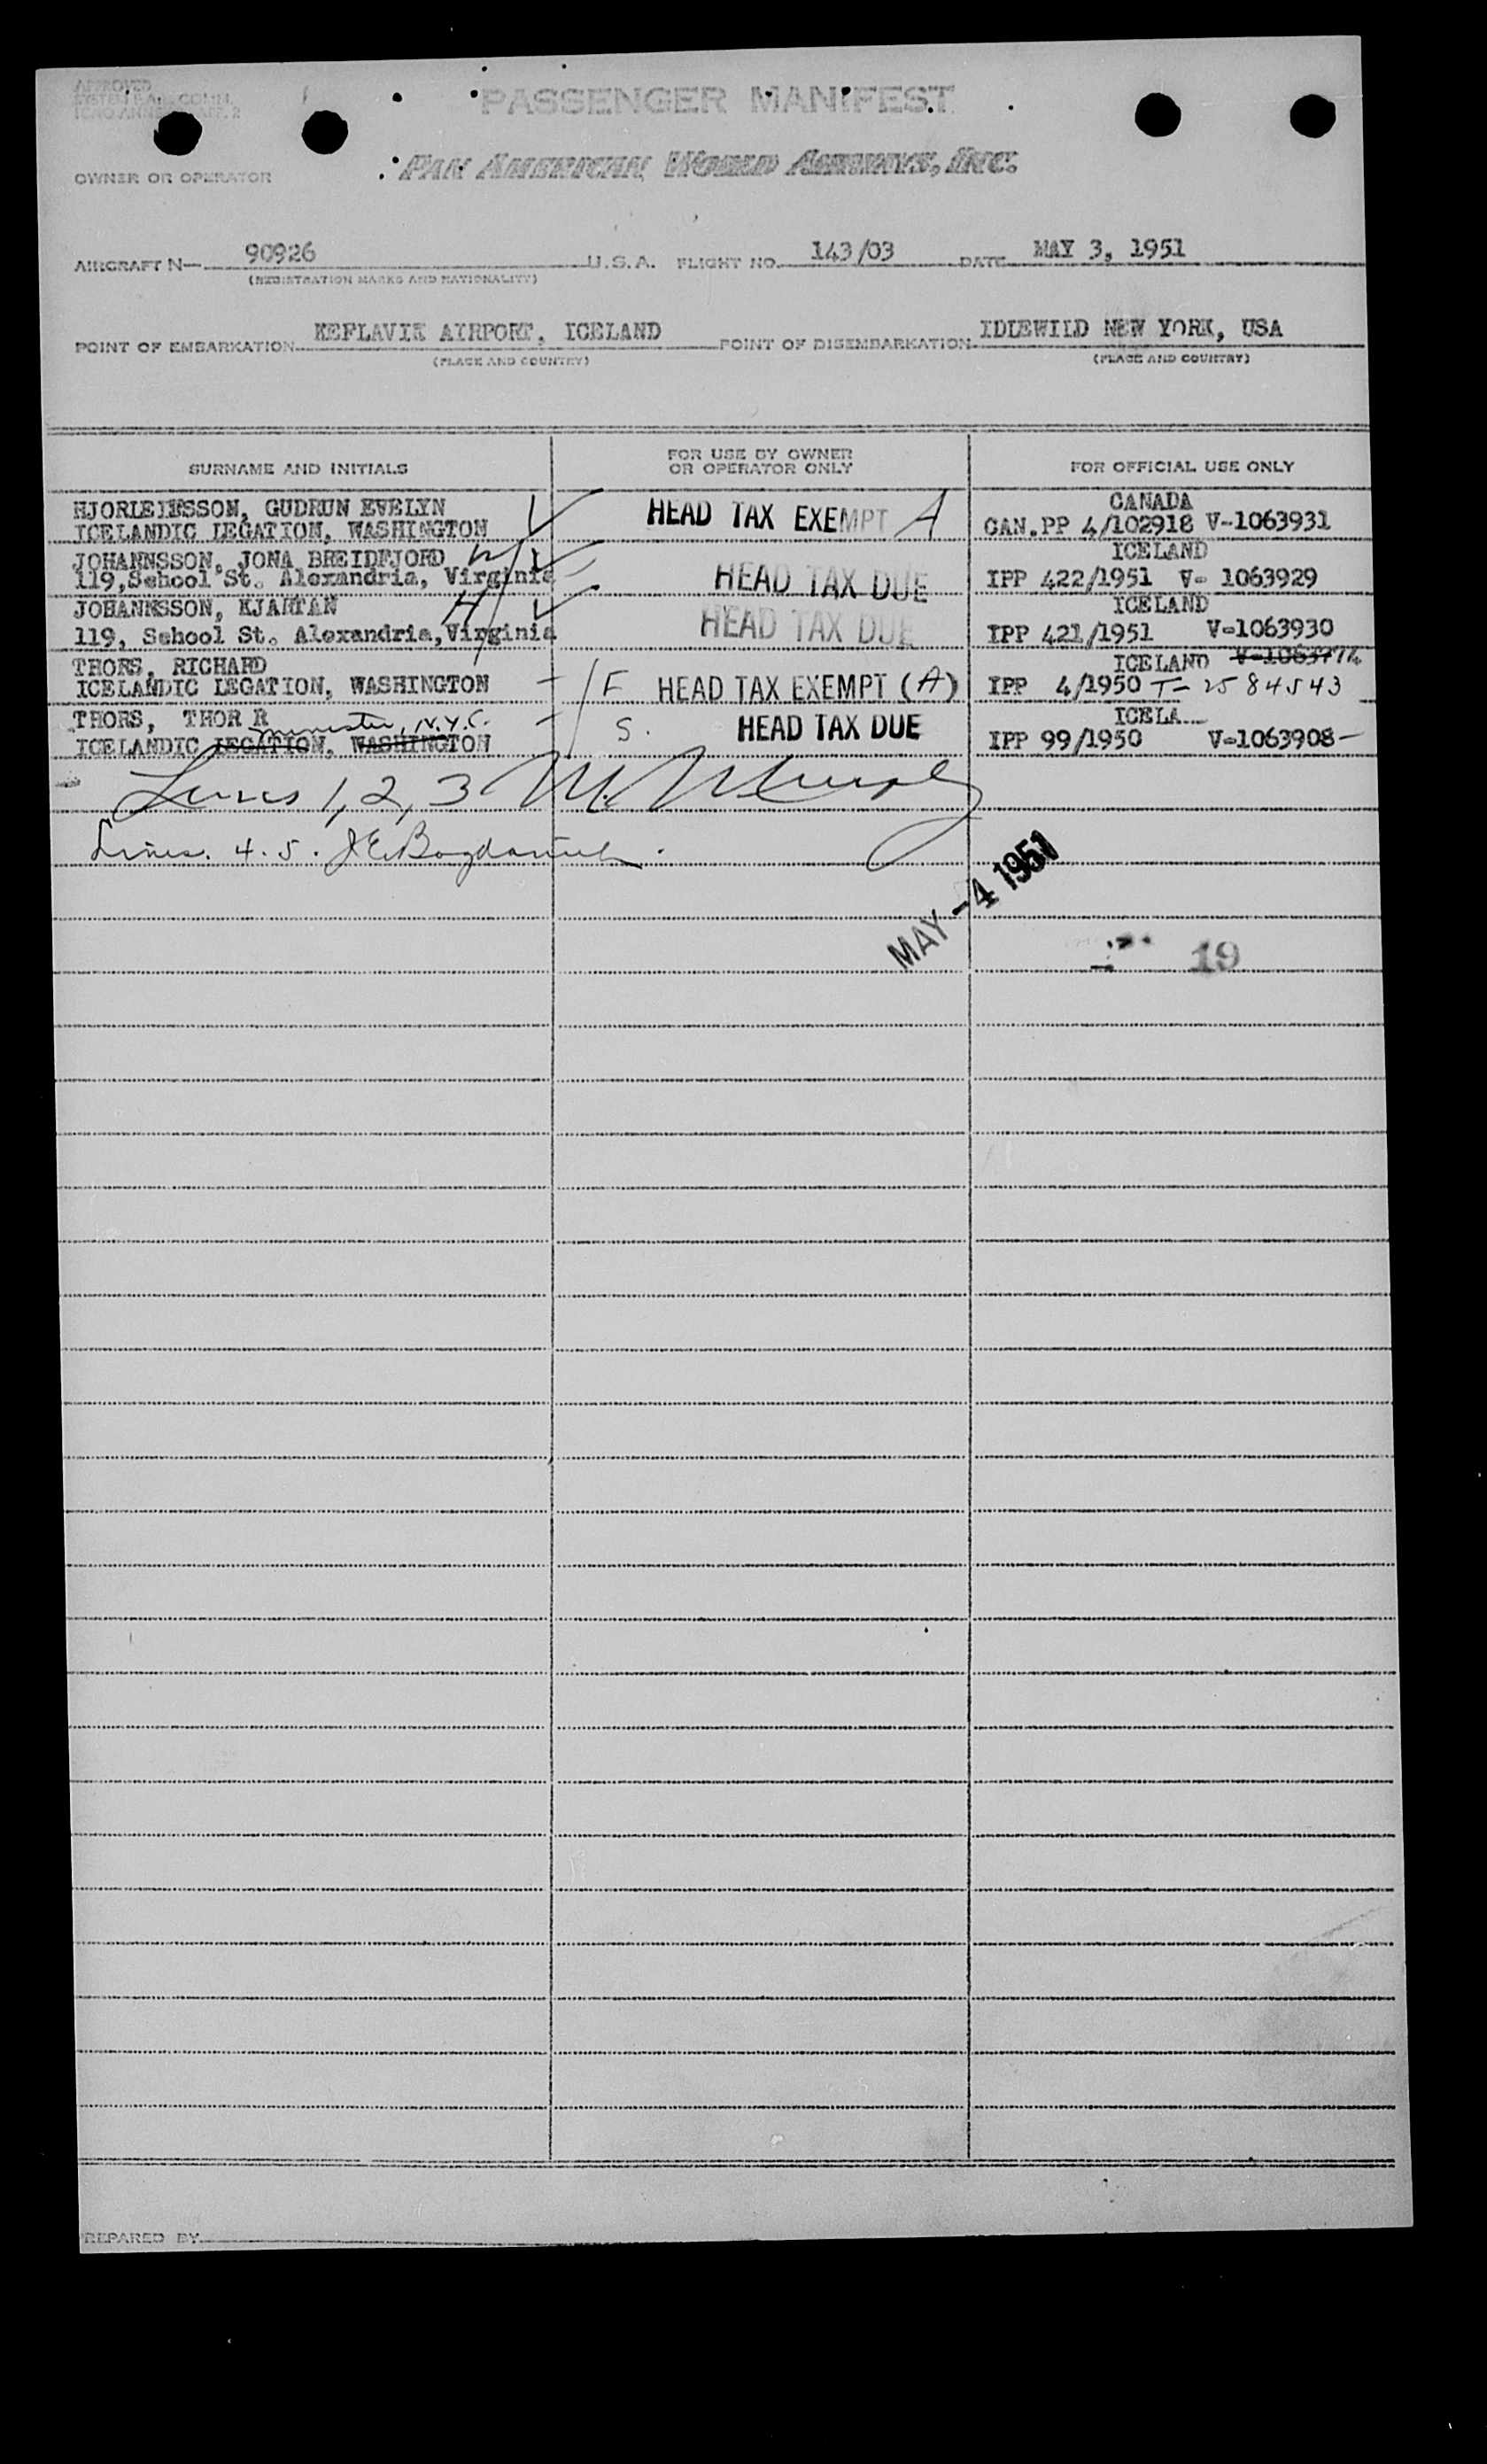 APPROVED
PASSENGER MANIFEST
OWNER OR OPERATOR PAN AMERICAN WORLD AIRWAYS, INC.
AIRCRAFT N- 90926 U.S.A. FLIGHT NO. 143/03 DATE MAY 3, 1951
(REGISTRATION MARKS AND NATIONALITY)
POINT OF EMBARKATION KEFLAVIK AIRPORT, ICELAND POINT OF DISEMBARKATION IDLEWILD NEW YORK, USA
(PLACE AND COUNTRY) (PLACE AND COUNTRY)
SURNAME AND INITIALS FOR USE BY OWNER OR OPERATOR ONLY FOR OFFICIAL USE ONLY
HJORLEIFSSON, GUDRUN EVELYN CANADA
ICELANDIC LEGATION, WASHINGTON HEAD TAX EXEMPT A CAN.PP 4/102918 V-1063931
JOHANNSSON, JONA BREIDFJORD ICELAND
119, School St. Alexandria, Virginia HEAD TAX DUE IPP 422/1951 V- 1063929
JOHANNSSON, KJARTAN ICELAND
119, School St. Alexandria, Virginia HEAD TAX DUE IPP 421/1951 V-1063930
THORS, RICHARD ICELAND
ICELANDIC LEGATION, WASHINGTON F HEAD TAX EXEMPT (A) IPP 4/1950 T-2584543
THORS, THOR R N.Y.C. ICELA
ICELANDIC LEGATION, WASHINGTON S. HEAD TAX DUE IPP 99/1950 V-1063908-
Lines 1, 2, 3
Lines. 4. 5.
MAY -4 1951
19
PREPARED BY